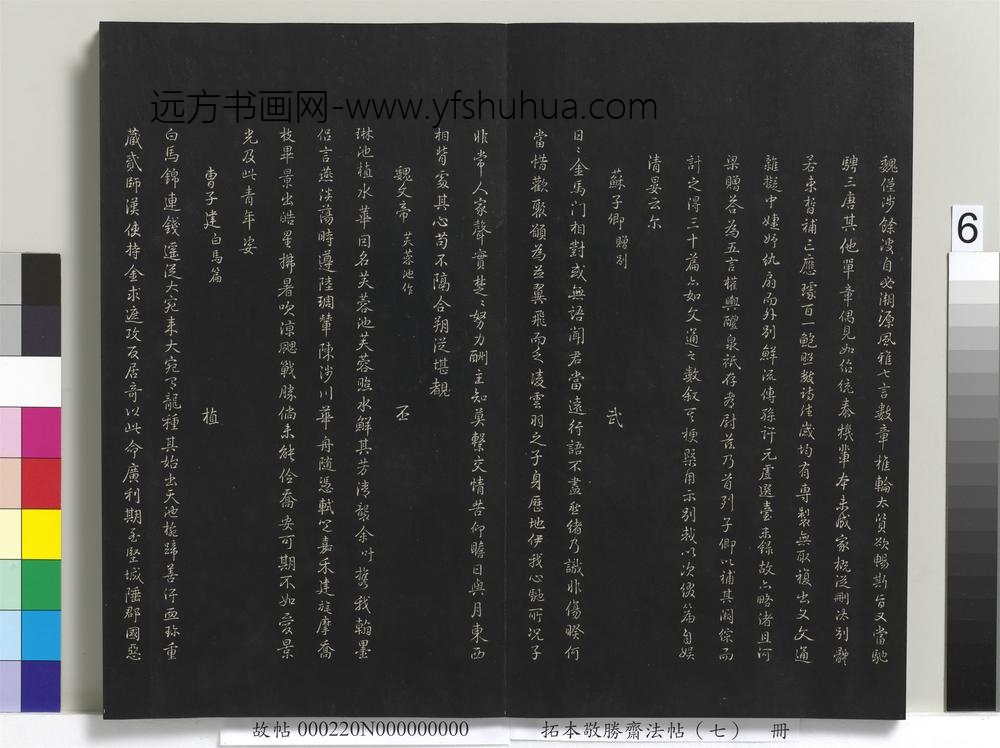 远方书画网-www.yfshuhua.com
魏僅涉餘波自必溯源風雅七言數章椎輪太質欲暢斯旨又當馳
騁三唐其他單章偶見如伯統秦機輩本未成家概從刪汰別體
若束晳補亡應璩百一鮑照數詩往歲均有專製無取複出又文通
雜擬中婕妤紈扇而外別鮮流傳孫許元虛選臺未錄故亦略諸且河
梁贈答為五言權輿醴泉祇存考尉茲乃首列子卿以補其闕條而
計之得三十篇亦如文通之數敘其梗槩用示別裁以次綴篇自娛
清宴云尔
蘇子卿 贈別 武
日日金馬门相對或無語闻君當遠行語不盡愁緒乃識非傷暌何
當惜歡聚願為並翼飛而乏淩雲羽之子身歷地伊我心馳所况子
非常人家聲實楚楚努力酬主知莫繫交情苦仰瞻日與月東西
相背處其心苟不隔合朔從堪覩
魏文帝 芙蓉池作 丕
琳池植水華因名芙蓉池芙蓉照水鮮其芳清襲余时髦我翰墨
侣言燕淡蕩時遵陸琱輦陳涉川華舟随憑軾望嘉禾建旋摩喬
枝畢景出皓星拂暑吹凉颸戰勝倘未能伶喬安可期不如愛景
光及此青年姿
曹子建 白馬篇 植
白馬錦連錢遥從大宛来大宛乃龍種其始出天池椀蹄善汗血珎重
蔵貳師漢使持金求遮攻反居奇以此命廣利期至堅城隳郡國惡
6
故帖 000220N000000000
拓本敬勝齋法帖（七） 冊